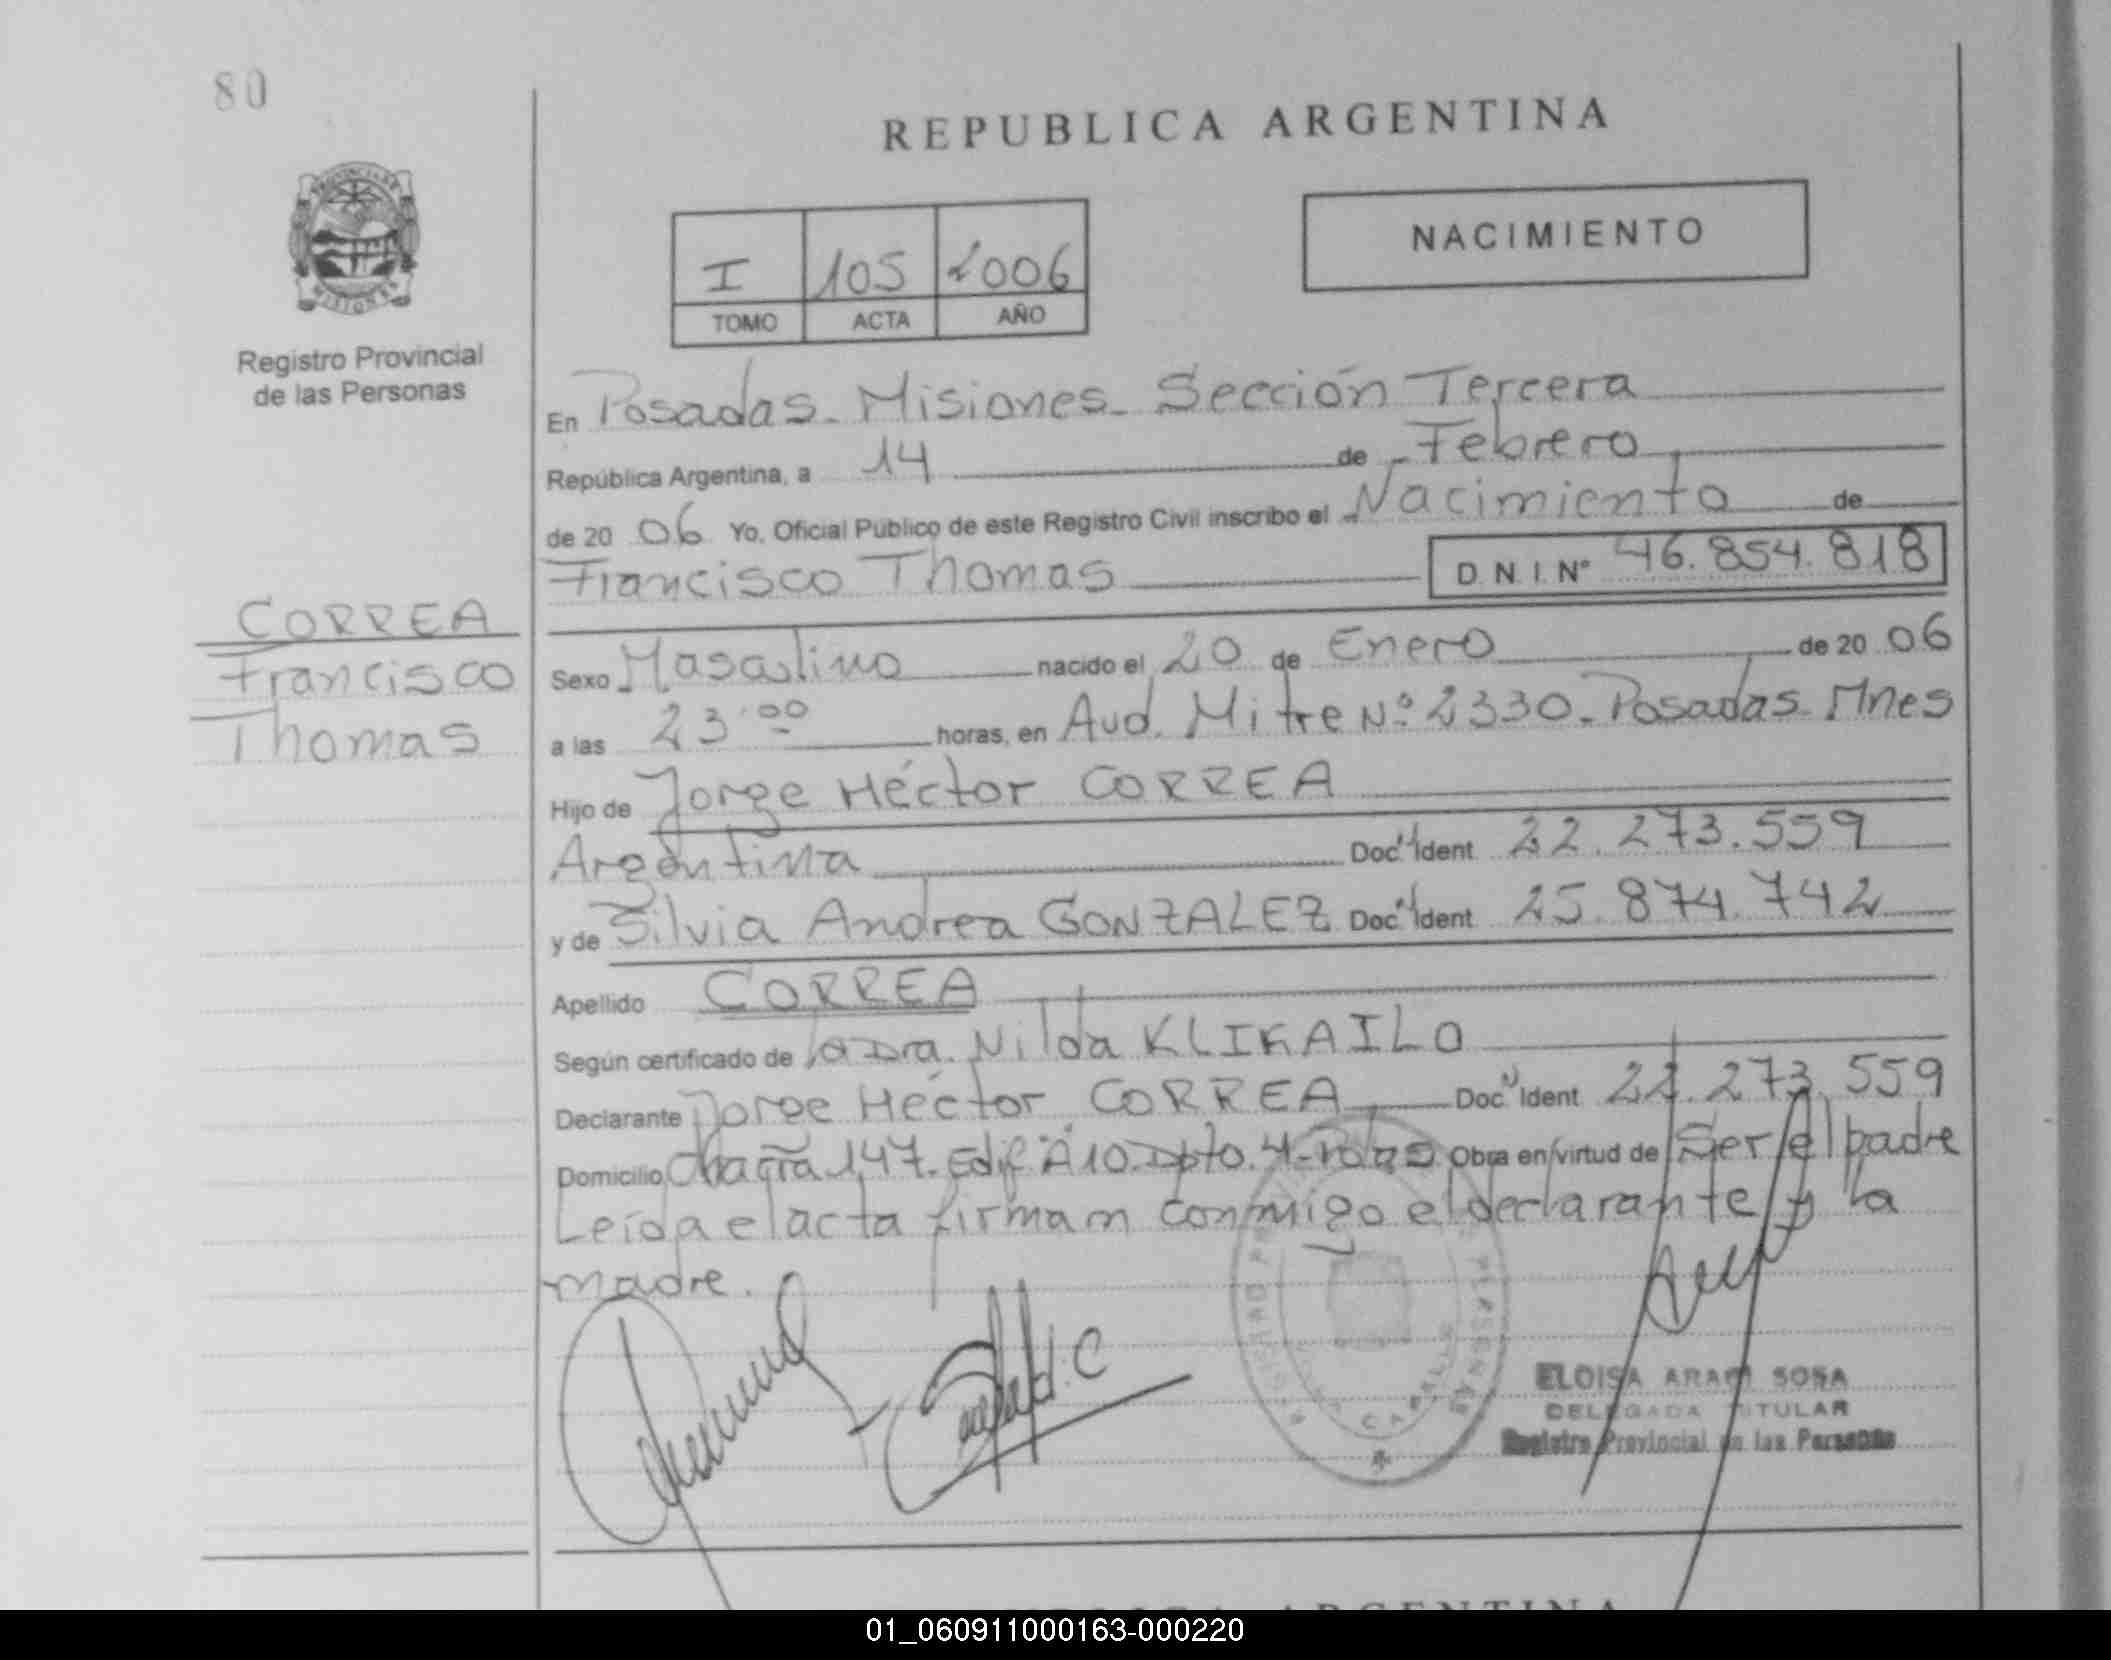 80
REPUBLICA ARGENTINA
PROVINCIA DE
MISIONES
Registro Provincial
de las Personas
I 105 2006
TOMO ACTA AÑO
NACIMIENTO
En Posadas - Misiones - Sección Tercera
República Argentina, a 14 de Febrero
de 20 06 Yo, Oficial Público de este Registro Civil inscribo el Nacimiento de
Francisco Thomas D.N.I. Nº 46.854.818
CORREA
Francisco
Thomas
Sexo Masculino nacido el 20 de Enero de 20 06
a las 23:00 horas, en Avd. Mitre Nº 2330 - Posadas - Mnes
Hijo de Jorge Héctor CORREA
Argentina Doc. Ident 22.273.559
y de Silvia Andrea GONZALEZ Doc. Ident 25.874.742
Apellido CORREA
Según certificado de la Dra. Nilda KLIKAILO
Declarante Jorge Héctor CORREA Doc. Ident 22.273.559
Domicilio Chacra 147. Edif. A10. Dpto. 4 - Obra en virtud de Ser el padre
Leída el acta firman conmigo el declarante y la
madre.
ELOISA SOSA
DELEGADA TITULAR
Registro Provincial de las Personas
REPUBLICA ARGENTINA
01_060911000163-000220